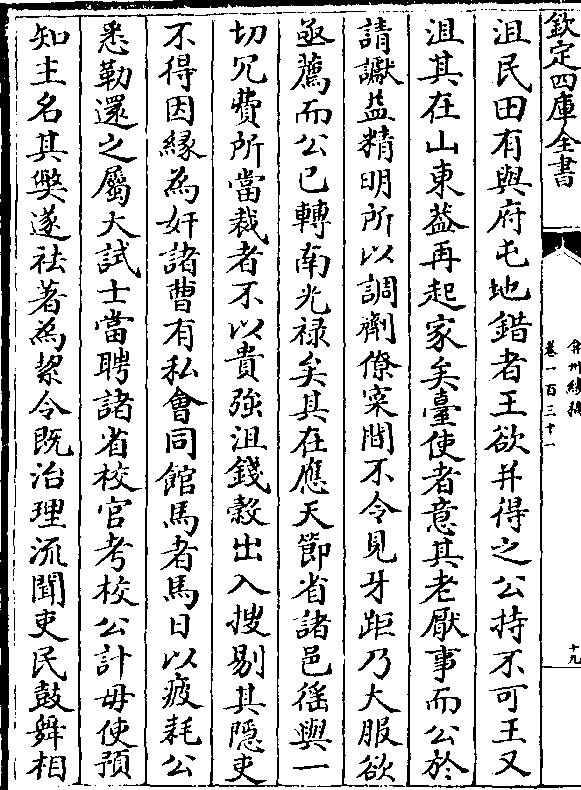 欽定四庫全書
弇州續稿
卷一百三十一
十九
沮民田有與府屯地錯者王欲并得之公持不可王又
沮其在山東葢再起家矣臺使者意其老厭事而公於
請讞葢精明所以調劑僚寀間不令見牙距乃大服欲
亟薦而公已轉南光禄矣其在應天節省諸邑徭輿一
切冗費所當裁者不以貴强沮錢榖出入搜剔其隠吏
不得因縁為奸諸曹有私會同館馬者馬日以疲耗公
悉勒還之屬大試士當聘諸省校官考校公計毋使預
知主名其獘遂祛著為絜令既治理流聞吏民鼓舞相